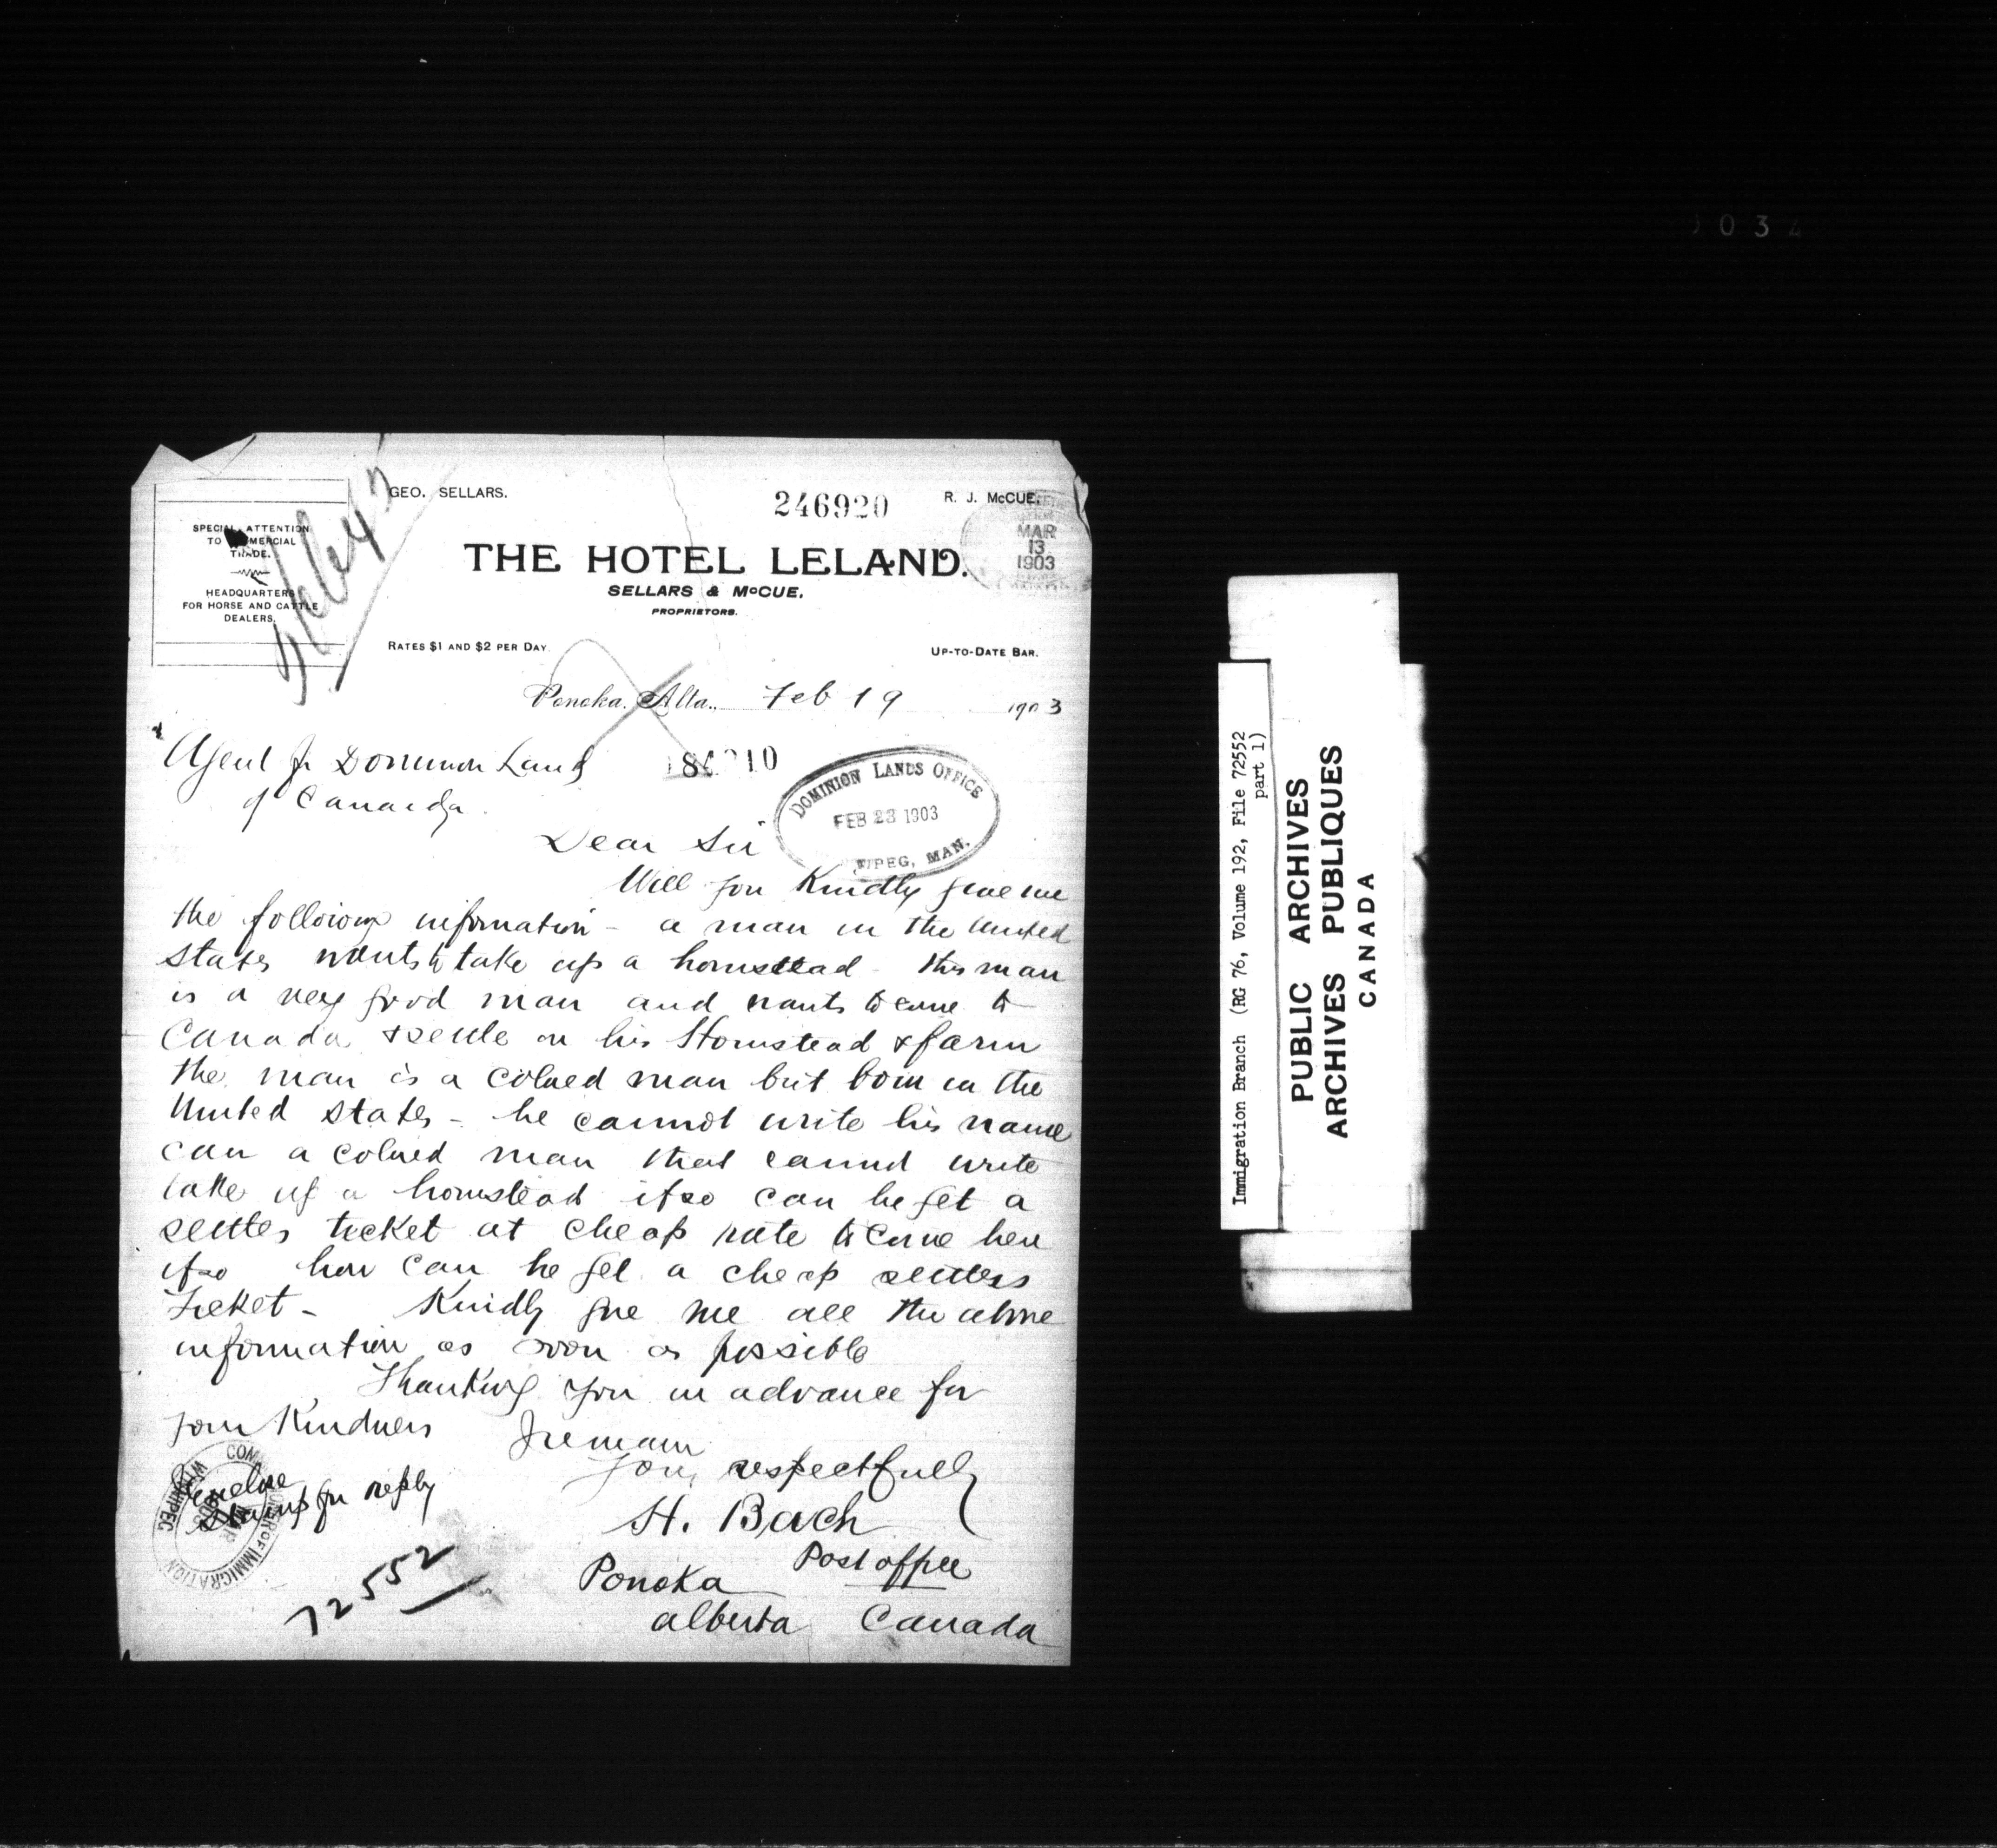 GEO. SELLARS.
246920
R. J. McCUE.
SPECIAL ATTENTION
TO COMMERCIAL
TRADE.
HEADQUARTERS
FOR HORSE AND CATTLE
DEALERS.
MAR
13
1903
THE HOTEL LELAND.
SELLARS & McCUE,
PROPRIETORS.
RATES $1 AND $2 PER DAY.
UP-TO-DATE BAR.
Ponoka, Alta., Feb 19 1903
Agent for Dominion Land
of Canada
10
DOMINION LANDS OFFICE
FEB 23 1903
WPEG, MAN.
Dear Sir
Will you Kindly give me
the following information - a man in the United
States wants to take up a homstead - this man
is a very good man and wants to come to
Canada & settle on his Homstead & farm
the man is a colued man but born in the
United States - he cannot write his name
can a colued man that cannot write
take up a homstead if so can he get a
settlers ticket at cheap rate to come here
if so how can he get a cheap settlers
Ticket - Kindly give me all the above
information as soon as possible
Thanking you in advance for
your Kindness I remain
Yours respectfully
H. Bach
Post office
Ponoka
alberta Canada
Enclose
Stamp for reply
COMMISSIONER OF IMMIGRATION
WINNIPEG
MAR
72552
Immigration Branch (RG 76, Volume 192, File 72552
part 1)
PUBLIC ARCHIVES
ARCHIVES PUBLIQUES
CANADA